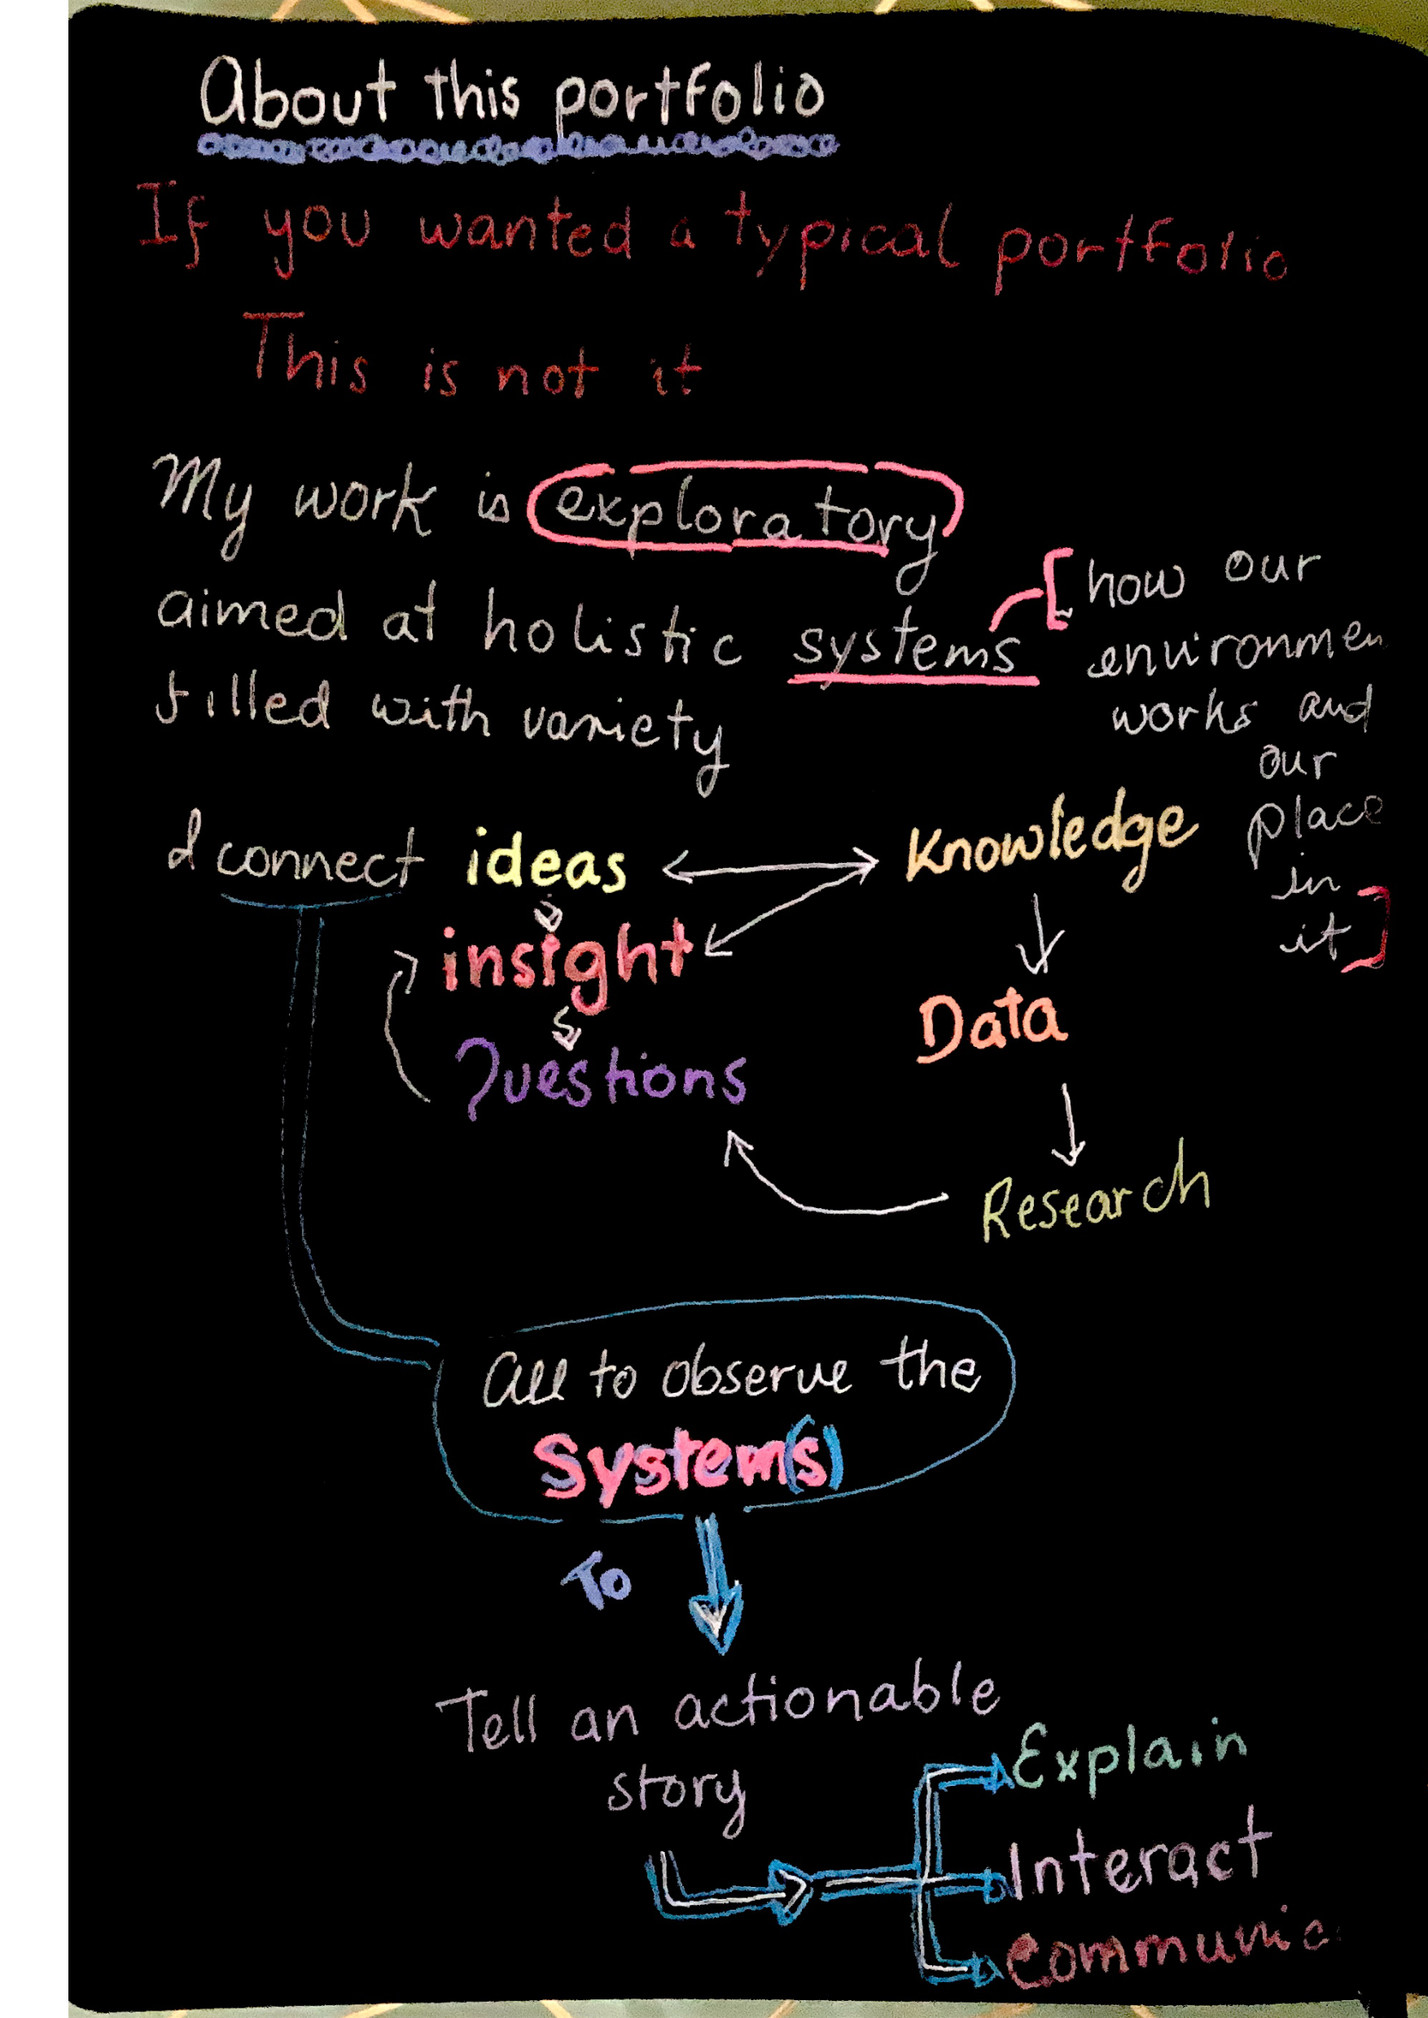 About this portfolio
If you wanted a typical portfolio
This is not it
My work is exploratory
aimed at holistic systems
filled with variety
[how our
environmen
works and
our
place
in
it]
I connect ideas
insight
Questions
Knowledge
Data
Research
all to observe the
System(s)
To
Tell an actionable
story
Explain
Interact
Communic